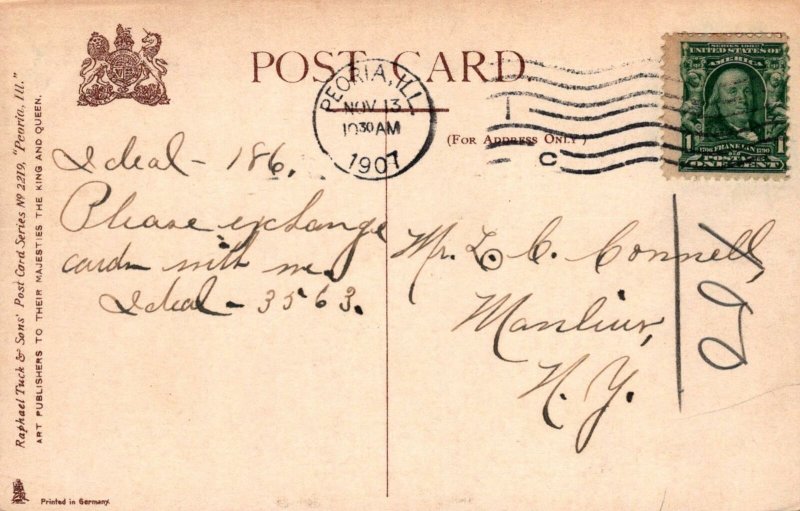 POST CARD
PEORIA, ILL.
NOV 13
10 30 AM
1907
C
SERIES 1902
UNITED STATES OF
AMERICA
1 1
1706 FRANKLIN 1790
POSTAGE
ONE CENT
(FOR ADDRESS ONLY)
Ideal - 186.
Please exchange
cards with me.
Ideal - 3563.
Mr. L. C. Connell,
Manlius,
N. Y.
Raphael Tuck & Sons' Post Card Series No 2219, "Peoria, Ill."
ART PUBLISHERS TO THEIR MAJESTIES THE KING AND QUEEN.
Printed in Germany.